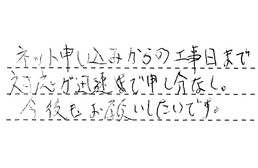 ネット申し込みからの工事日まで
対応が迅速で申し分なし。
今後もお願いしたいです。